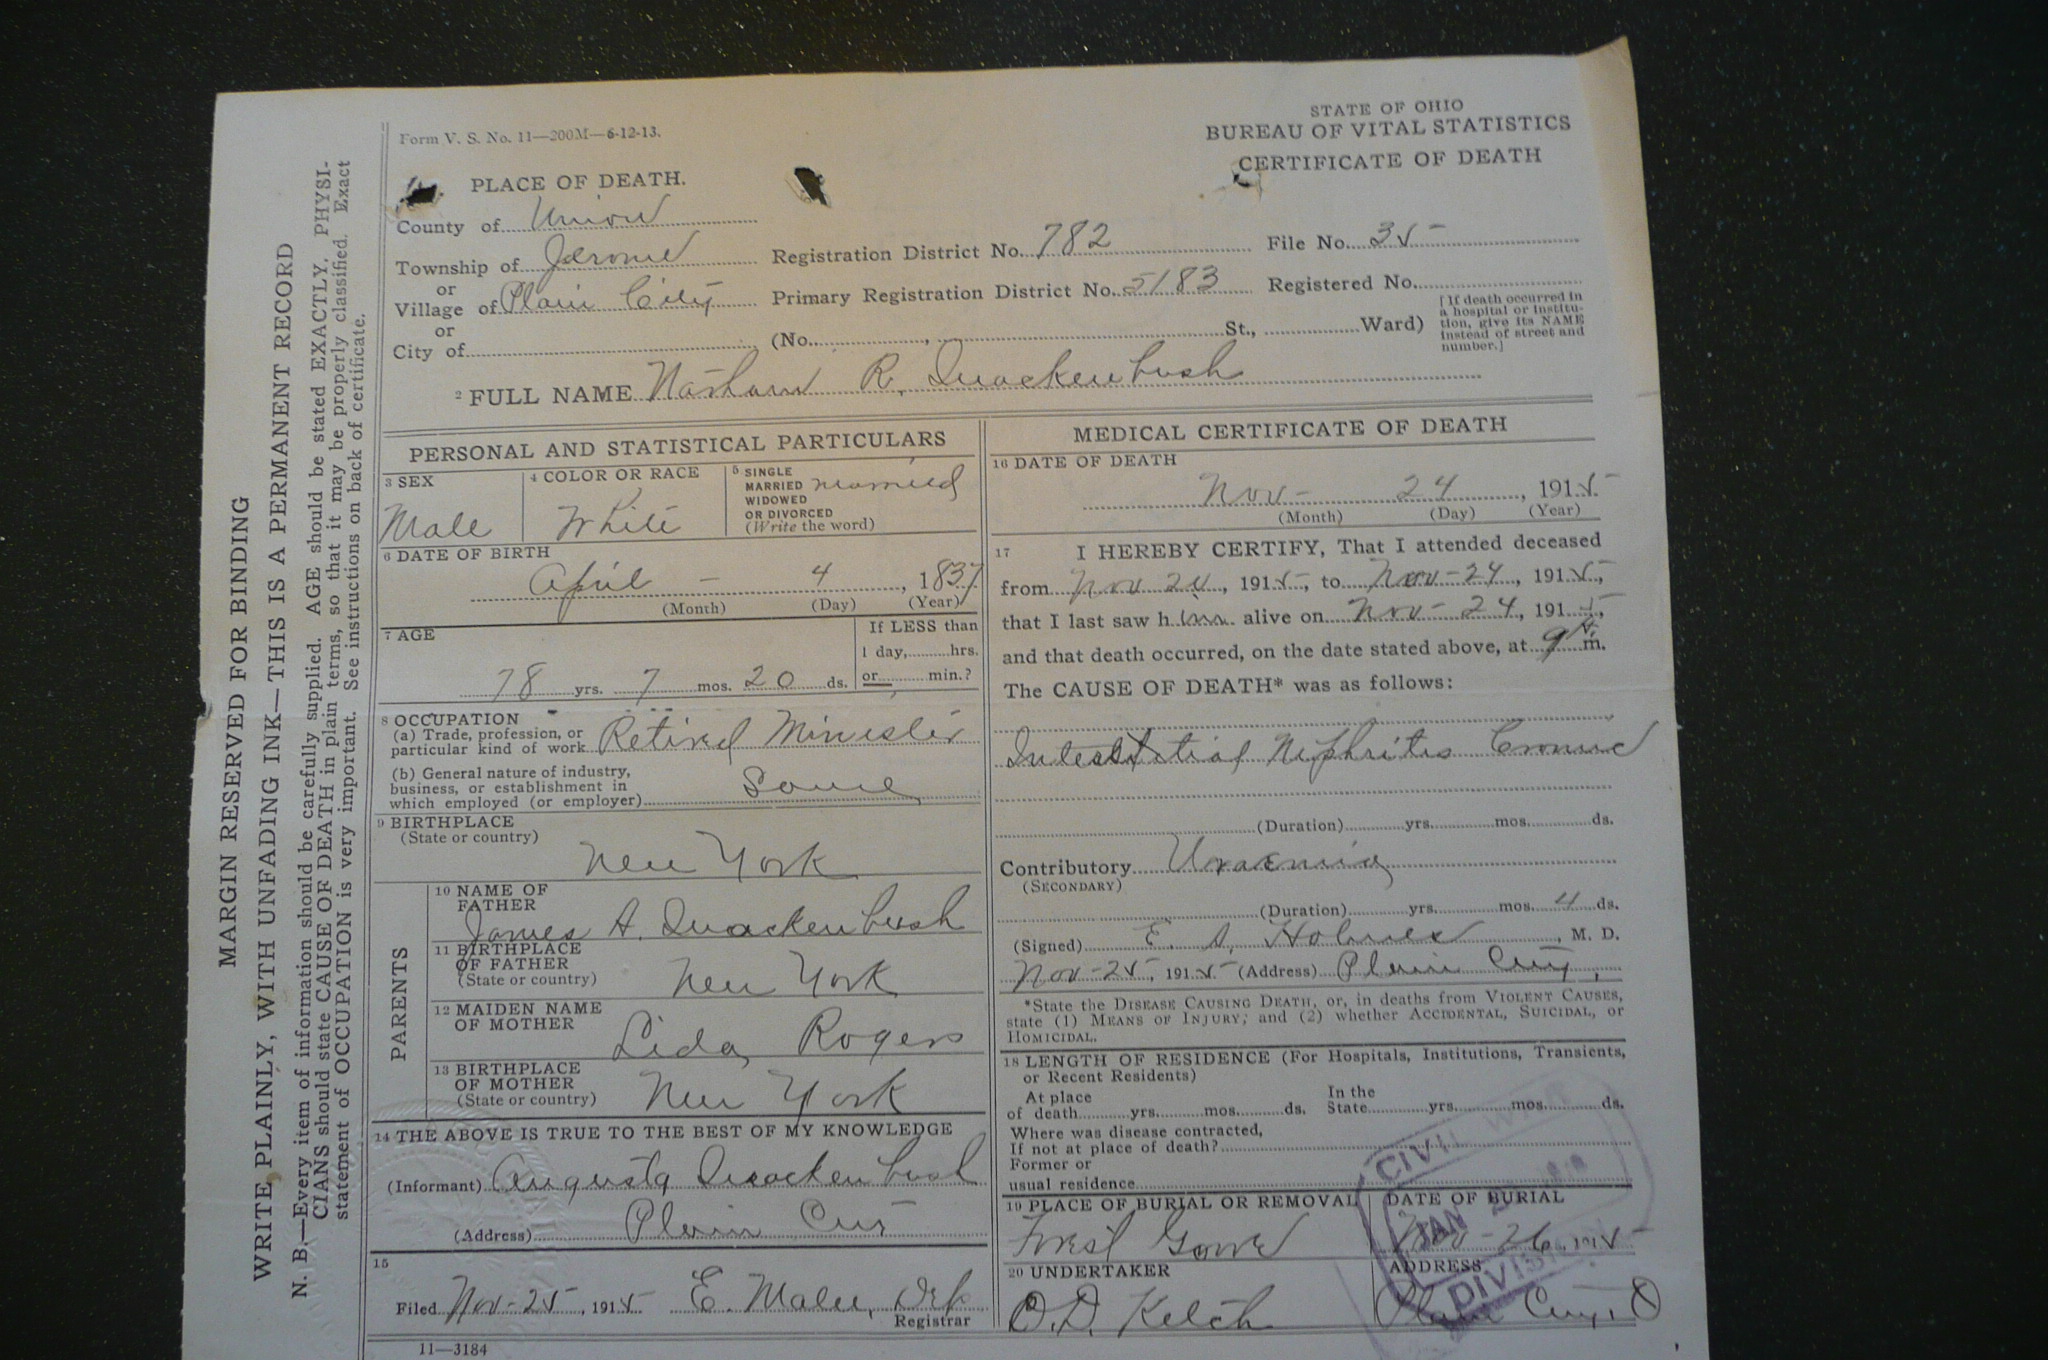 STATE OF OHIO
BUREAU OF VITAL STATISTICS
CERTIFICATE OF DEATH
Form V. S. No. 11—200M—6-12-13.
PLACE OF DEATH.
County of Union
Township of Jerome Registration District No. 782 File No. 35
or
Village of Plain City Primary Registration District No. 5183 Registered No.
or
City of (No. , St., Ward)
[If death occurred in
a hospital or institu-
tion, give its NAME
instead of street and
number.]
2 FULL NAME Nathan R. Quackenbush
PERSONAL AND STATISTICAL PARTICULARS
3 SEX
Male
4 COLOR OR RACE
White
5 SINGLE
MARRIED married
WIDOWED
OR DIVORCED
(Write the word)
6 DATE OF BIRTH
April - 4, 1837
(Month) (Day) (Year)
7 AGE
78 yrs. 7 mos. 20 ds.
If LESS than
1 day, hrs.
or min.?
8 OCCUPATION
(a) Trade, profession, or
particular kind of work Retired Minister
(b) General nature of industry,
business, or establishment in
which employed (or employer) Same
9 BIRTHPLACE
(State or country)
New York
PARENTS
10 NAME OF
FATHER
James A. Quackenbush
11 BIRTHPLACE
OF FATHER
(State or country) New York
12 MAIDEN NAME
OF MOTHER Lida Rogers
13 BIRTHPLACE
OF MOTHER
(State or country) New York
14 THE ABOVE IS TRUE TO THE BEST OF MY KNOWLEDGE
(Informant) Augusta Quackenbush
(Address) Plain City
15
Filed Nov-25, 1915 E. Registrar
11—3184
MEDICAL CERTIFICATE OF DEATH
16 DATE OF DEATH
Nov- 24, 1915
(Month) (Day) (Year)
17 I HEREBY CERTIFY, That I attended deceased
from Nov 20, 1915, to Nov-24, 1915,
that I last saw him alive on Nov-24, 1915,
and that death occurred, on the date stated above, at 9 m.
The CAUSE OF DEATH* was as follows:
Interstitial Nephritis Cronic
(Duration) yrs. mos. ds.
Contributory Uraemia
(SECONDARY)
(Duration) yrs. mos. 4 ds.
(Signed) E. S. Holmes, M. D.
Nov-25, 1915 (Address) Plain City,
*State the DISEASE CAUSING DEATH, or, in deaths from VIOLENT CAUSES,
state (1) MEANS OF INJURY; and (2) whether ACCIDENTAL, SUICIDAL, or
HOMICIDAL.
18 LENGTH OF RESIDENCE (For Hospitals, Institutions, Transients,
or Recent Residents)
At place
of death yrs. mos. ds.
In the
State yrs. mos. ds.
Where was disease contracted,
If not at place of death?
Former or
usual residence
19 PLACE OF BURIAL OR REMOVAL
Forest Grove
DATE OF BURIAL
Nov-26, 1915
20 UNDERTAKER
O.D. Kelch
ADDRESS
Plain City, O
CIVIL WAR
JAN
DIVISION
MARGIN RESERVED FOR BINDING
WRITE PLAINLY, WITH UNFADING INK—THIS IS A PERMANENT RECORD
N. B.—Every item of information should be carefully supplied. AGE should be stated EXACTLY. PHYSI-
CIANS should state CAUSE OF DEATH in plain terms, so that it may be properly classified. Exact
statement of OCCUPATION is very important. See instructions on back of certificate.